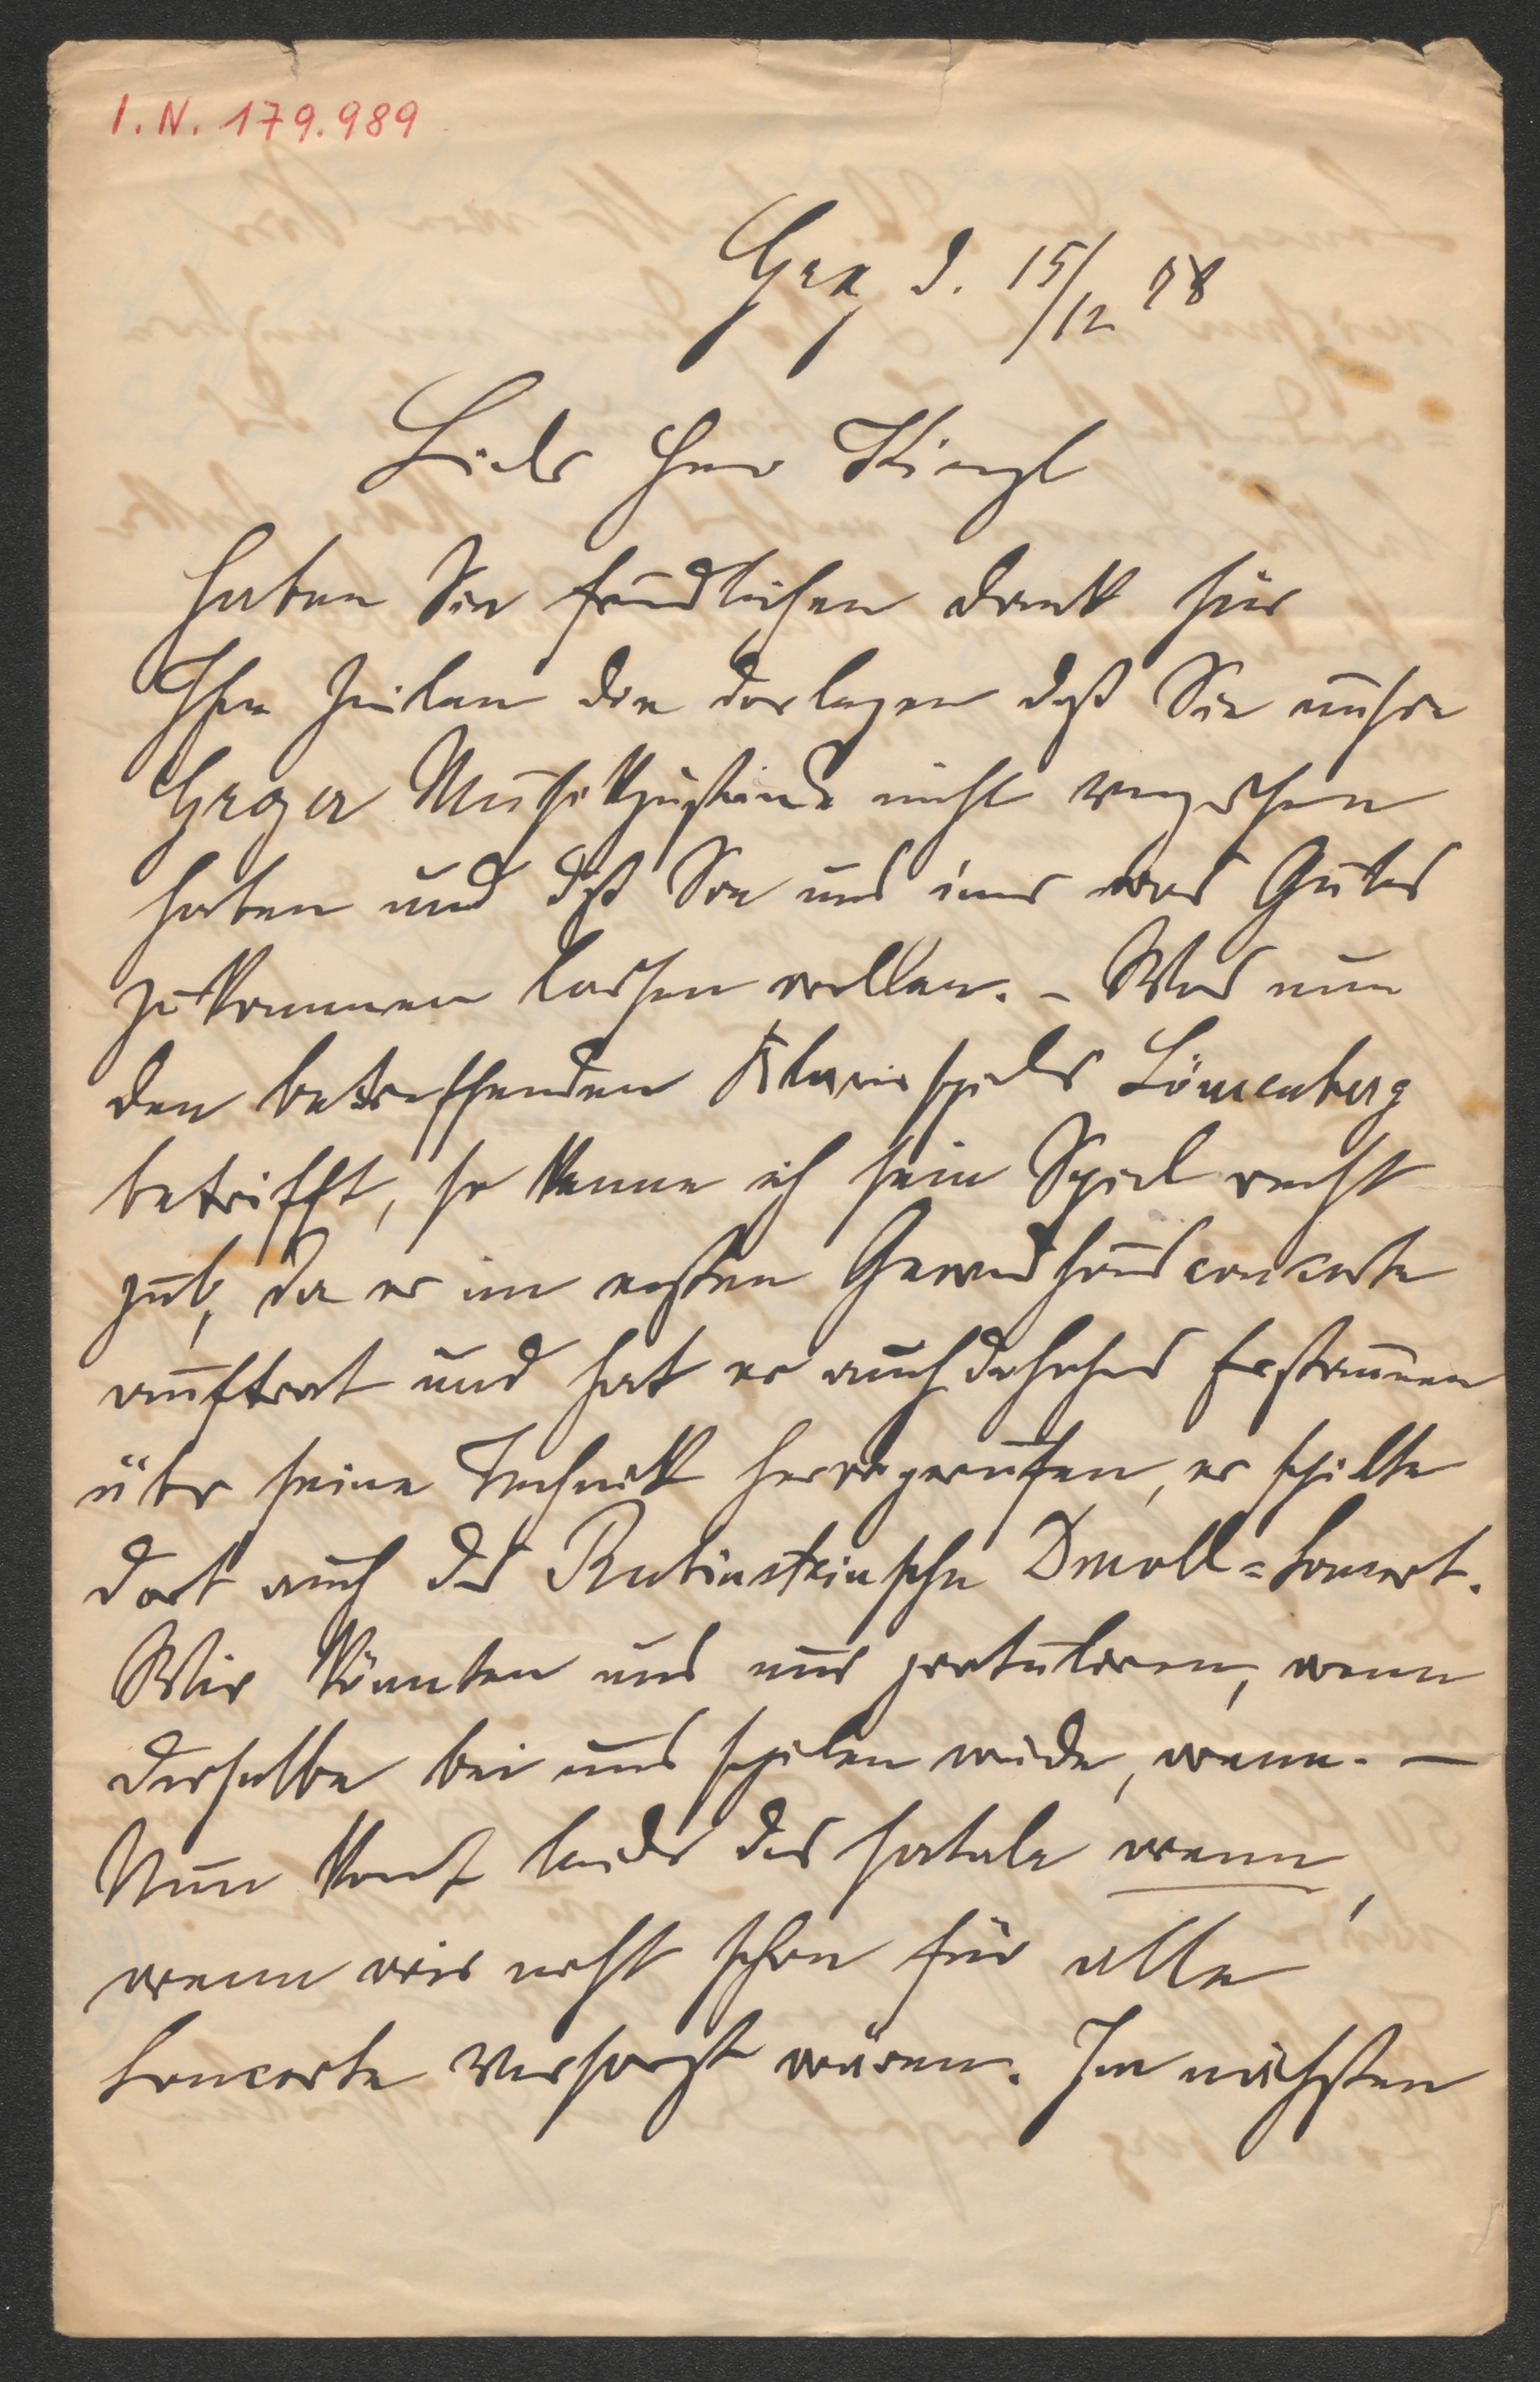 I. N. 179.989
Graz d. 15/12 78
Lieber Herr Kienzl
Haben Sie freundlichen Dank für
Ihre Zeilen die darlegen daß Sie unsre
Grazer Musikzustände nicht vergessen
haben und daß Sie uns immer was Gutes
zukommen lassen wollen. – Was nun
den betreffenden Klavierspieler Löwenberg
betrifft, so kenne ich sein Spiel recht
gut, da er im ersten Gewandhausconcerte
auftrat und hat er auch Erstaunen
über seine Technik hervorgerufen, er spielte
dort auch das Rubinsteinsche Dmoll=Concert.
Wir könnten uns nur gratuliren, wenn
derselbe bei uns spielen würde, wenn. –
Nun kommt leider das fatale wenn,
wenn wir nicht schon für alle
Concerte versorgt wären. Im nächsten